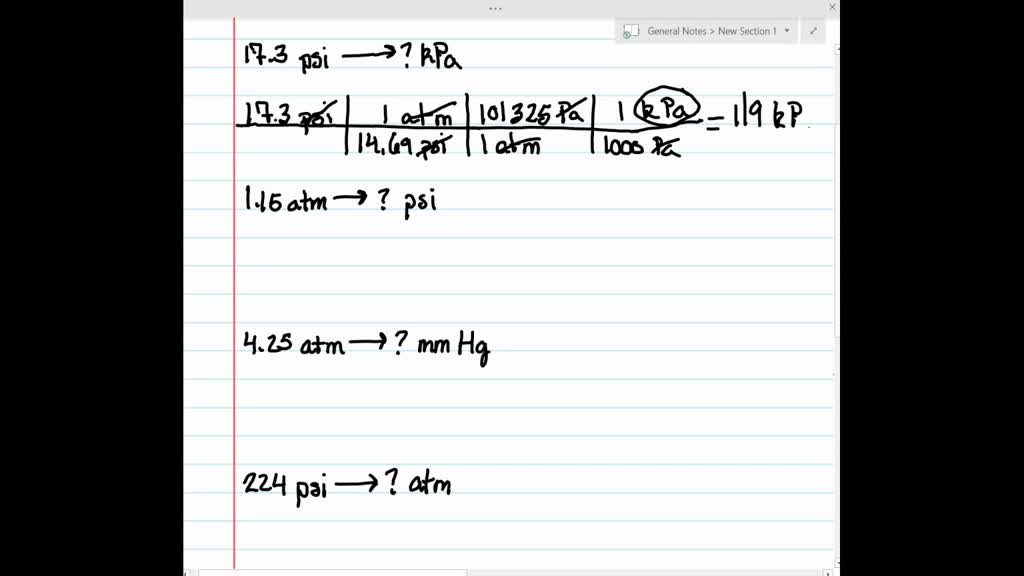 General Notes > New Section 1
17.3 psi → ? kPa
17.3 psi | 1 atm | 101325 Pa | 1 kPa = 119 kP
14.69 psi | 1 atm | 1000 Pa
1.15 atm → ? psi
4.25 atm → ? mm Hg
224 psi → ? atm